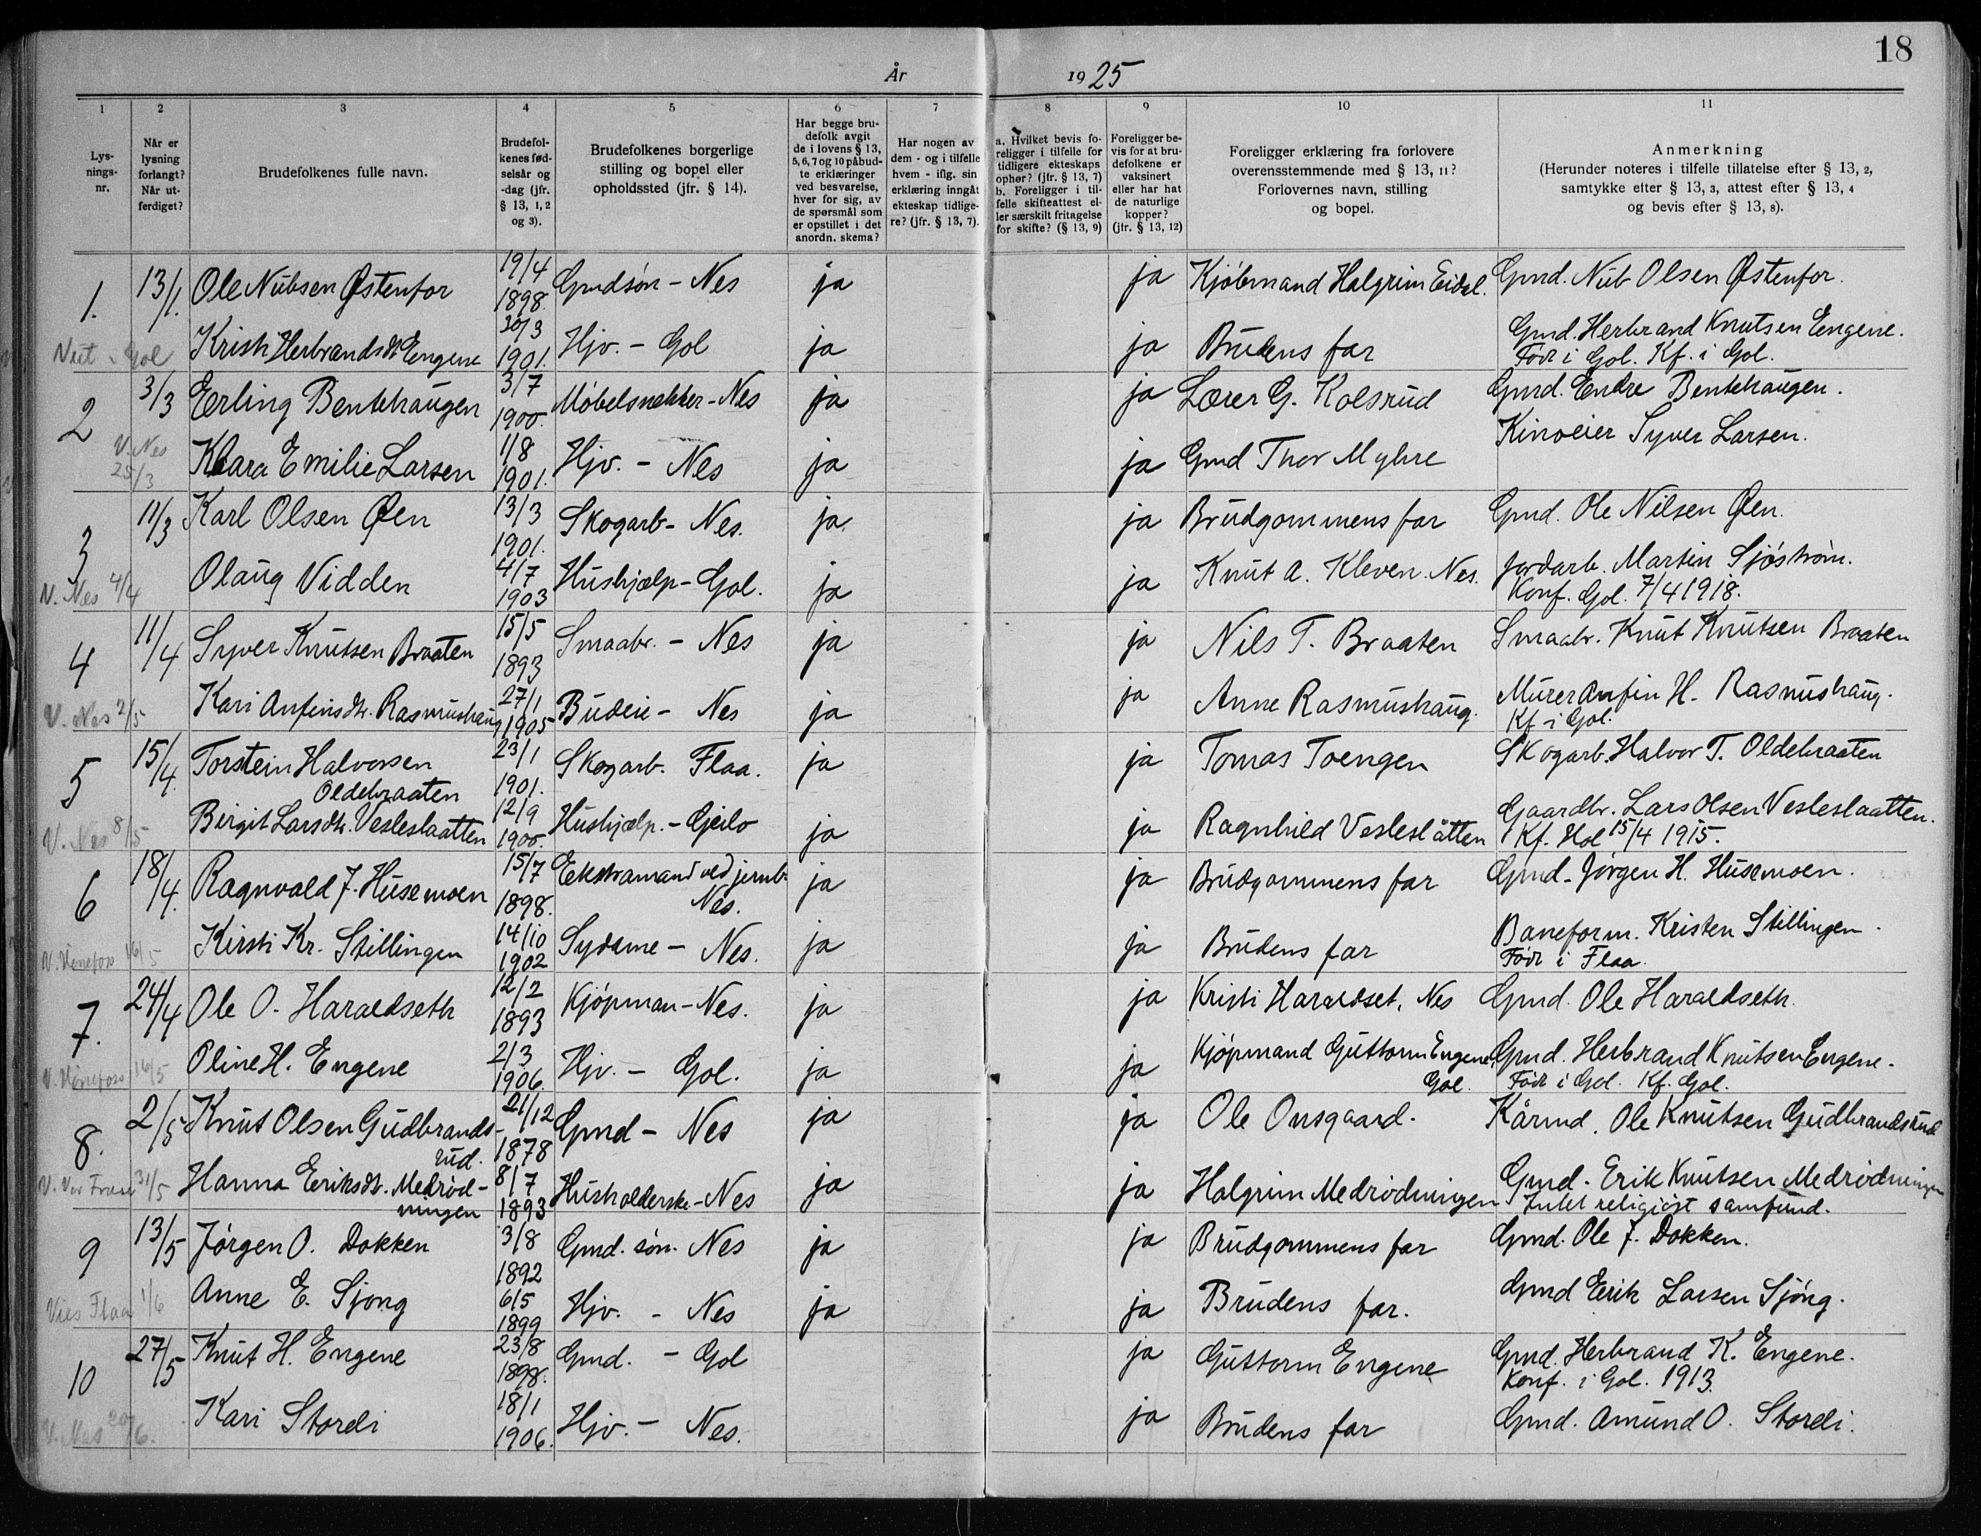 18
År 1925
1 2 3 4 5 6 7 8 9 10 11
Lysnings-nr.
Når er lysning forlangt? Når utferdiget?
Brudefolkenes fulle navn.
Brudefolkenes fødselsår og -dag (jfr. § 13, 1, 2 og 3).
Brudefolkenes borgerlige stilling og bopel eller opholdssted (jfr. § 14).
Har begge brudefolk avgit de i lovens § 13, 5, 6, 7 og 10 påbudte erklæringer ved besvarelse, hver for sig, av de spørsmål som er opstillet i det anordn. skema?
Har nogen av dem - og i tilfelle hvem - iflg. sin erklæring inngått ekteskap tidligere? (jfr. § 13, 7).
a. Hvilket bevis foreligger i tilfelle for tidligere ekteskaps ophør? (jfr. § 13, 7) b. Foreligger i tilfelle skifteattest eller særskilt fritagelse for skifte? (§ 13, 9)
Foreligger bevis for at brudefolkene er vaksinert eller har hat de naturlige kopper? (jfr. § 13, 12)
Foreligger erklæring fra forlovere overensstemmende med § 13, 11? Forlovernes navn, stilling og bopel.
Anmerkning (Herunder noteres i tilfelle tillatelse efter § 13, 2, samtykke efter § 13, 3, attest efter § 13, 4 og bevis efter § 13, 8).
1. 13/1. Ole Nubsen Østenfor 19/4 1898. Gmdsøn - Nes ja ja Kjøbmand Halgrim Eidal. Gmd. Nub Olsen Østenfor.
Gol Kristi Herbrandsdt Engene 30/3 1901. Hjv. - Gol ja ja Brudens far Gmd. Herbrand Knutsen Engene.
Født i Gol. Kf. i Gol.
2 3/3 Erling Bentehaugen 3/7 1900. Møbelsnekker - Nes ja ja Lærer G. Kolsrud Gmd. Endre Bentehaugen.
V. Nes 25/3 Klara Emilie Larsen 1/8 1901. Hjv. - Nes ja ja Gmd Thor Myhre Kinoeier Syver Larsen.
3 11/3 Karl Olsen Øen 13/3 1901. Skogarb - Nes. ja ja Brudgommens far Gmd. Ole Nilsen Øen.
V. Nes 4/4 Olaug Vidden 4/7 1903 Hushjælp - Gol. ja ja Knut A. Kleven. Nes. Jordarb. Martin Sjöström.
Konf. Gol. 7/4 1918.
4 11/4 Syver Knutsen Braaten 15/5 1893 Smaabr. - Nes ja ja Nils T. Braaten Smaabr. Knut Knutsen Braaten
V. Nes 2/5 Kari Anfinsdtr. Rasmushaug 27/1 1905 Budeie - Nes ja ja Anne Rasmushaug. Murer Anfin H. Rasmushaug.
Kf i Gol.
5 15/4. Torstein Halvorsen Oldebraaten 23/1 1901. Skogarb. Flaa. ja ja Tomas Toengen Skogarb. Halvor T. Oldebraaten
V. Nes 8/5 Birgit Larsdtr. Vesleslaatten 12/9 1900. Hushjælp. - Geilo ja ja Ragnhild Vesleslåtten Gaardbr. Lars Olsen Vesleslaatten.
Kf. Hol 15/4 1915.
6 18/4. Ragnvald J. Husemoen 15/7 1898. Ekstramand ved jernb. Nes. ja ja Brudgommens far Gmd. Jørgen H. Husemoen.
V. Hønefoss 16/5 Kirsti Kr. Stillingen 14/10 1902 Sydame - Nes. ja ja Brudens far Baneform. Kristen Stillingen.
Født i Flaa.
7. 24/4 Ole O. Haraldseth 12/2 1893 Kjøpman - Nes. ja ja Kristi Haraldset, Nes Gmd. Ole Haraldseth.
V. Hønefoss 16/5 Oline H. Engene 2/3 1906. Hjv. - Gol. ja ja Kjøpmand Guttorm Engene Gol. Gmd. Herbrand Knutsen Engene.
Født i Gol. Kf. Gol.
8. 2/5 Knut Olsen Gudbrandsrud. 21/12 1878 Gmd - Nes ja ja Ole Onsgaard. Kårmd. Ole Knutsen Gudbrandsrud
31/5 Hanna Eriksdt. Medrødningen 8/7 1893 Husholderske - Nes ja ja Halgrim Medrødningen Gmd. Erik Knutsen Medrødningen
Intet religiøst samfund.
9 13/5 Jørgen O. Dokken 3/8 1892 Gmd. søn. Nes ja ja Brudgommens far Gmd. Ole J. Dokken.
Vies Flaa 1/6 Anne E. Sjong 6/5 1899 Hjv. - Nes ja ja Brudens far. Gmd Erik Larsen Sjóng.
10 27/5 Knut H. Engene 23/8 1898. Gmd. - Gol ja Guttorm Engene Gmd. Herbrand K. Engene.
Konf. i Gol. 1913.
V. Nes 20/6. Kari Stordi 18/1 1906. Hjv. - Nes. ja Brudens far Gmd. Amund O. Stordi.